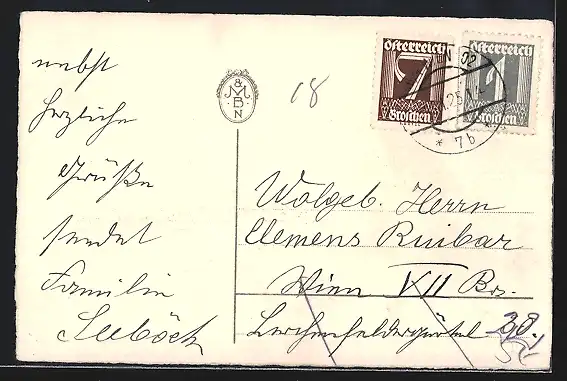 nebst
herzliche
Grüße
sendet
Familie
Seeböck
M & B N
18
Österreich
7
Groschen
Österreich
1
Groschen
25
* 7b
Wolgeb. Herrn
Clemens Ruibar
Wien XVII Bez.
Lerchenfeldergürtel 38.